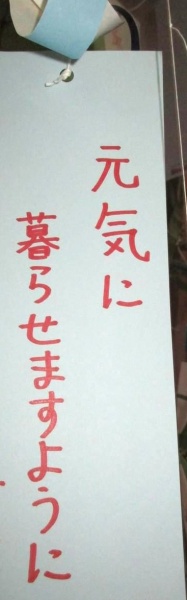 元気に
暮らせますように